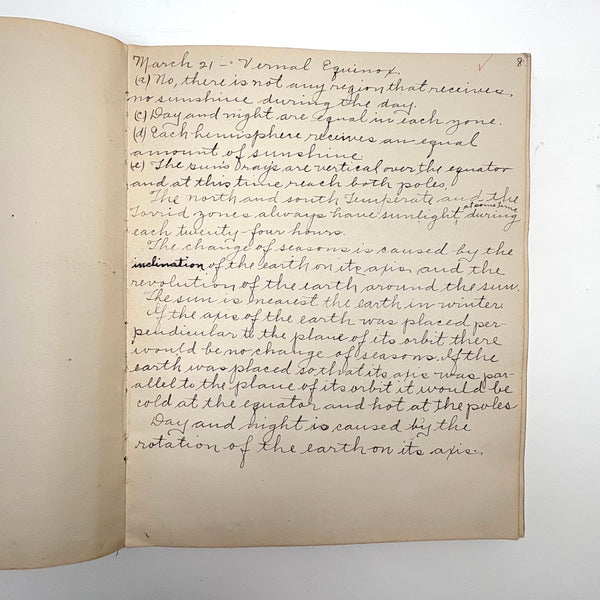 8
March 21 - Vernal Equinox.
(a) No, there is not any region that receives
no sunshine during the day.
(c) Day and night are equal in each zone.
(d) Each hemisphere receives an equal
amount of sunshine
(e) The sun's rays are vertical over the equator
and at this time reach both poles.
The north and south Temperate and the
Torrid zones always have sunlight, at some time during
each twenty-four hours.
The change of seasons is caused by the
inclination of the earth on its axis and the
revolution of the earth around the sun.
The sun is nearest the earth in winter
If the axis of the earth was placed per-
pendicular to the plane of its orbit there
would be no change of seasons. If the
earth was placed so that its axis was par-
allel to the plane of its orbit it would be
cold at the equator and hot at the poles
Day and night is caused by the
rotation of the earth on its axis.